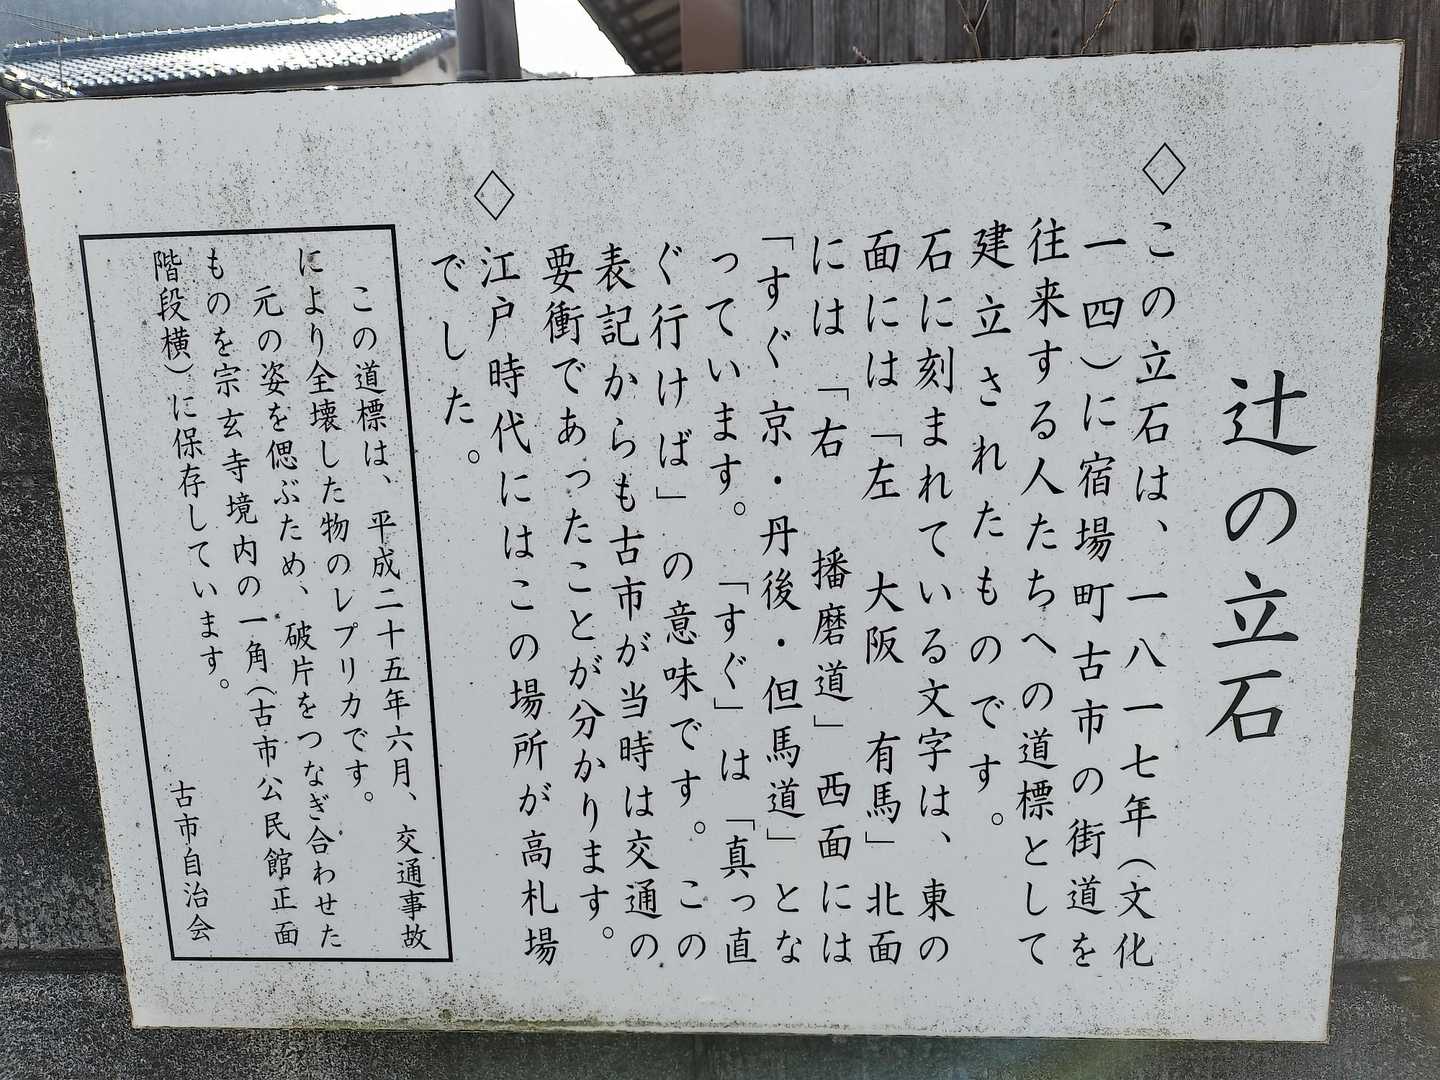 辻の立石
◇この立石は、一八一七年（文化
一四）に宿場町古市の街道を
往来する人たちへの道標として
建立されたものです。
石に刻まれている文字は、東の
面には「左　大阪　有馬」北面
には「右　播磨道」西面には
「すぐ京・丹後・但馬道」とな
っています。「すぐ」は「真っ直
ぐ行けば」の意味です。この
表記からも古市が当時は交通の
要衝であったことが分かります。
◇江戸時代にはこの場所が高札場
でした。
この道標は、平成二十五年六月、交通事故
により全壊した物のレプリカです。
元の姿を偲ぶため、破片をつなぎ合わせた
ものを宗玄寺境内の一角（古市公民館正面
階段横）に保存しています。
古市自治会